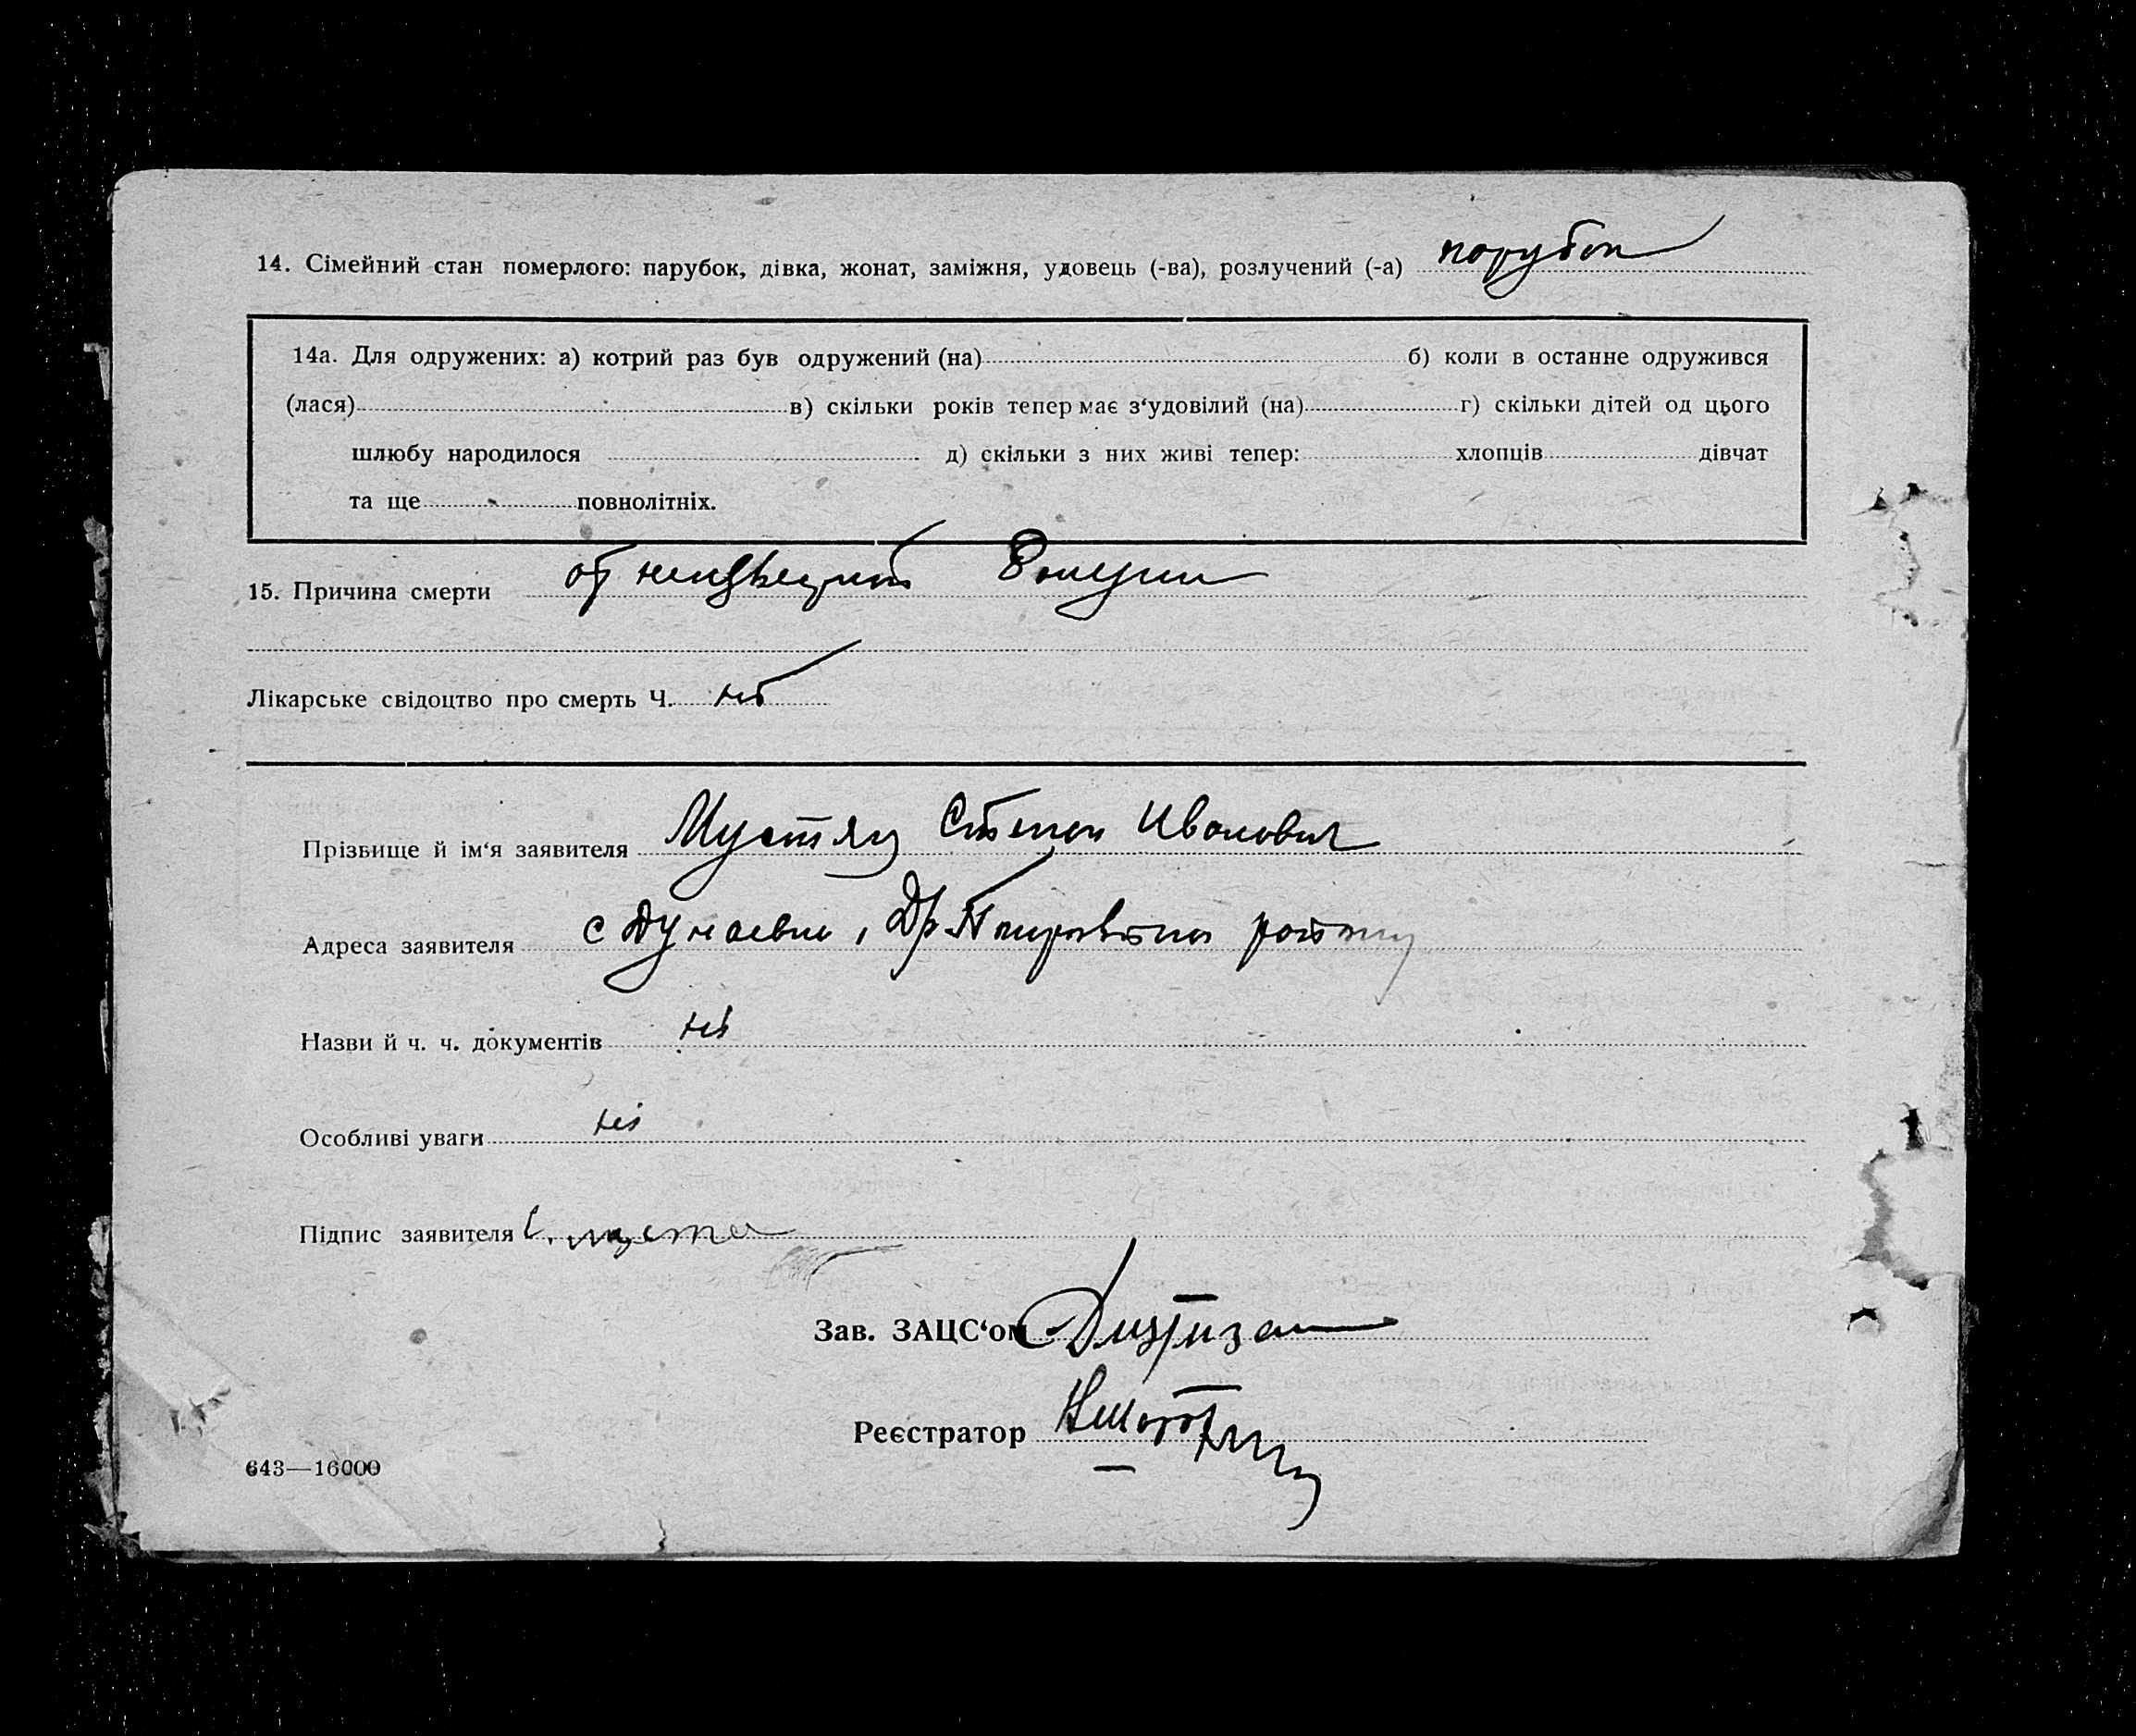 14. Сімейний стан померлого: парубок, дівка, жонат, заміжня, удовець (-ва), розлучений (-а) порубок
14а. Для одружених: а) котрий раз був одружений (на) б) коли в останне одружився
(лася) в) скільки років тепер має з‘удовілий (на) г) скільки дітей од цього
шлюбу народилося д) скільки з них живі тепер: хлопців дівчат
та ще повнолітніх.
15. Причина смерти от
Лікарське свідоцтво про смерть Ч. нет
Прізвище й ім‘я заявителя Степан Иванович
Адреса заявителя с
Назви й ч. ч. документів
Особливі уваги
Підпис заявителя
Зав. ЗАЦС‘ом
Реєстратор
643—16000